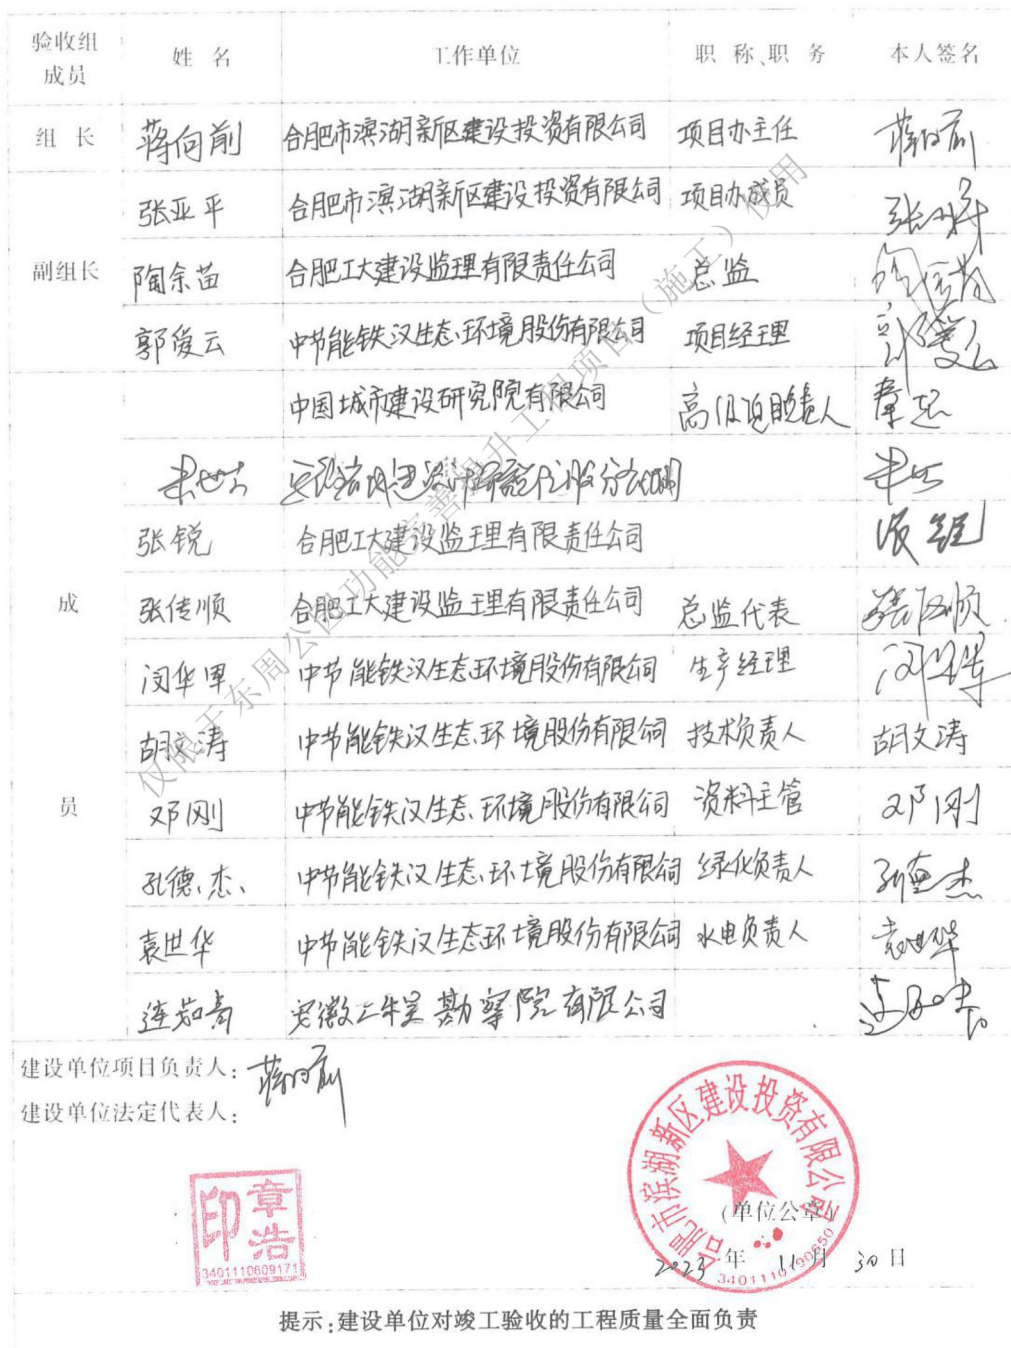 验收组成员 姓 名 工作单位 职 称、职 务 本人签名
组 长 蒋向前 合肥市滨湖新区建设投资有限公司 项目办主任 蒋向前
张亚平 合肥市滨湖新区建设投资有限公司 项目办成员
副组长 陶余苗 合肥工大建设监理有限责任公司 总监
郭爱云 中节能铁汉生态环境股份有限公司 项目经理
中国城市建设研究院有限公司
张锐 合肥工大建设监理有限责任公司 张锐
成 张传顺 合肥工大建设监理有限责任公司 总监代表 张传顺
闵华甲 中节能铁汉生态环境股份有限公司 生产经理
胡文涛 中节能铁汉生态环境股份有限公司 技术负责人 胡文涛
员 邓刚 中节能铁汉生态环境股份有限公司 资料主管 邓刚
孔德杰 中节能铁汉生态环境股份有限公司 绿化负责人 孔德杰
袁世华 中节能铁汉生态环境股份有限公司 水电负责人 袁世华
勘察院有限公司
仅限于东周公园功能完善提升工程项目（施工）使用
建设单位项目负责人：蒋向前
建设单位法定代表人：
章浩印
3401110609171
合肥市滨湖新区建设投资有限公司
（单位公章）
2023 年 11 月 30 日
提示：建设单位对竣工验收的工程质量全面负责